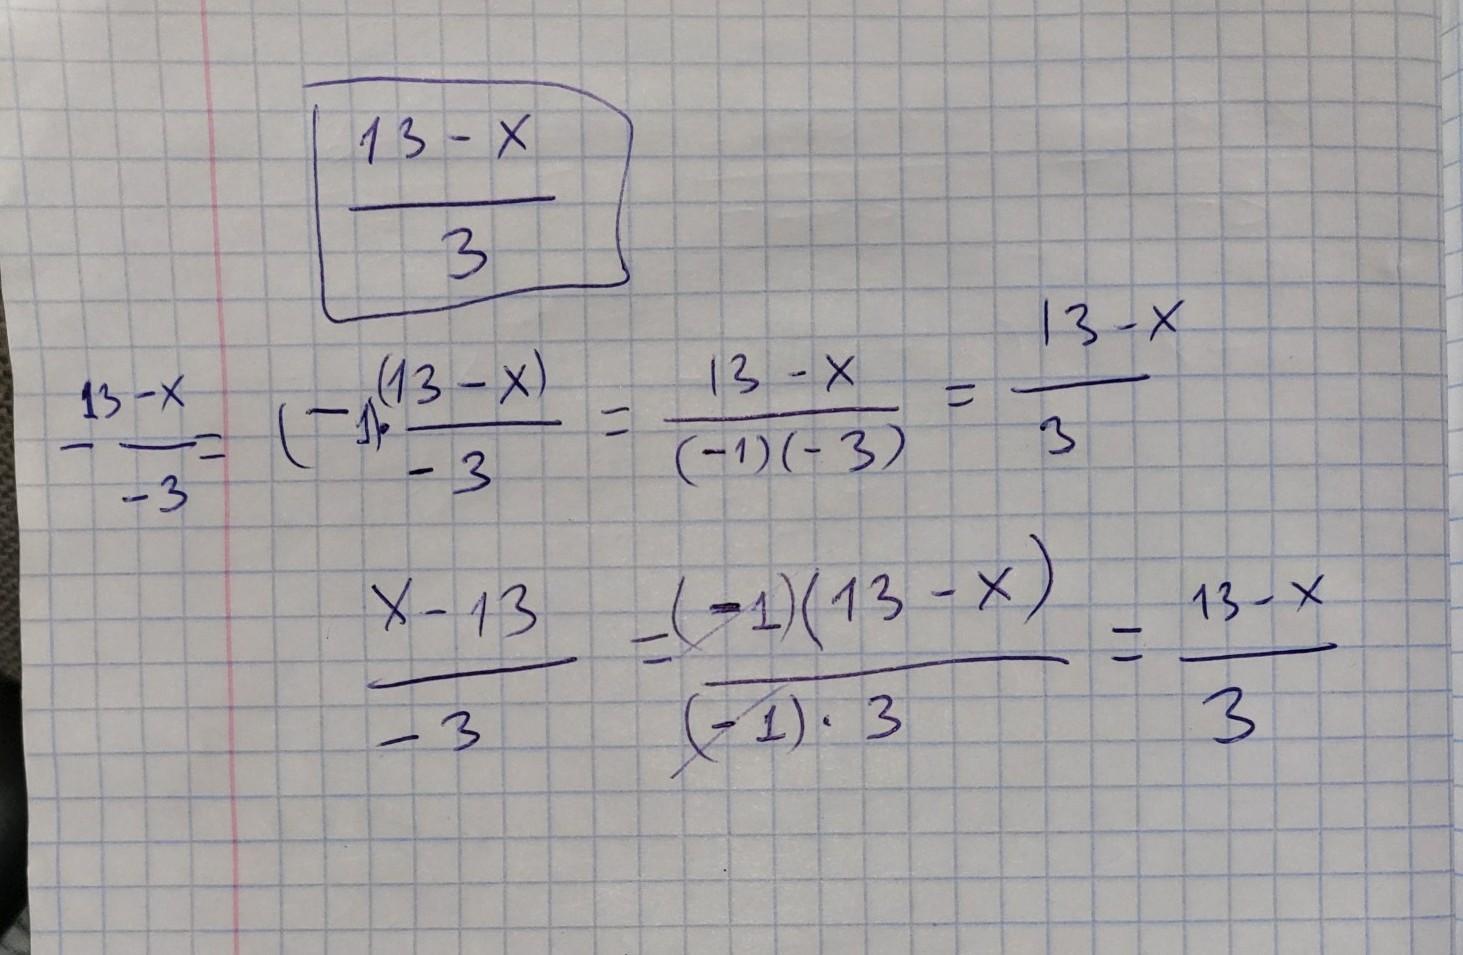 13 - x
3
- 13 - x / -3 = (-1) · (13 - x) / -3 = 13 - x / (-1)(-3) = 13 - x / 3
x - 13 / -3 = (-1)(13 - x) / (-1) · 3 = 13 - x / 3